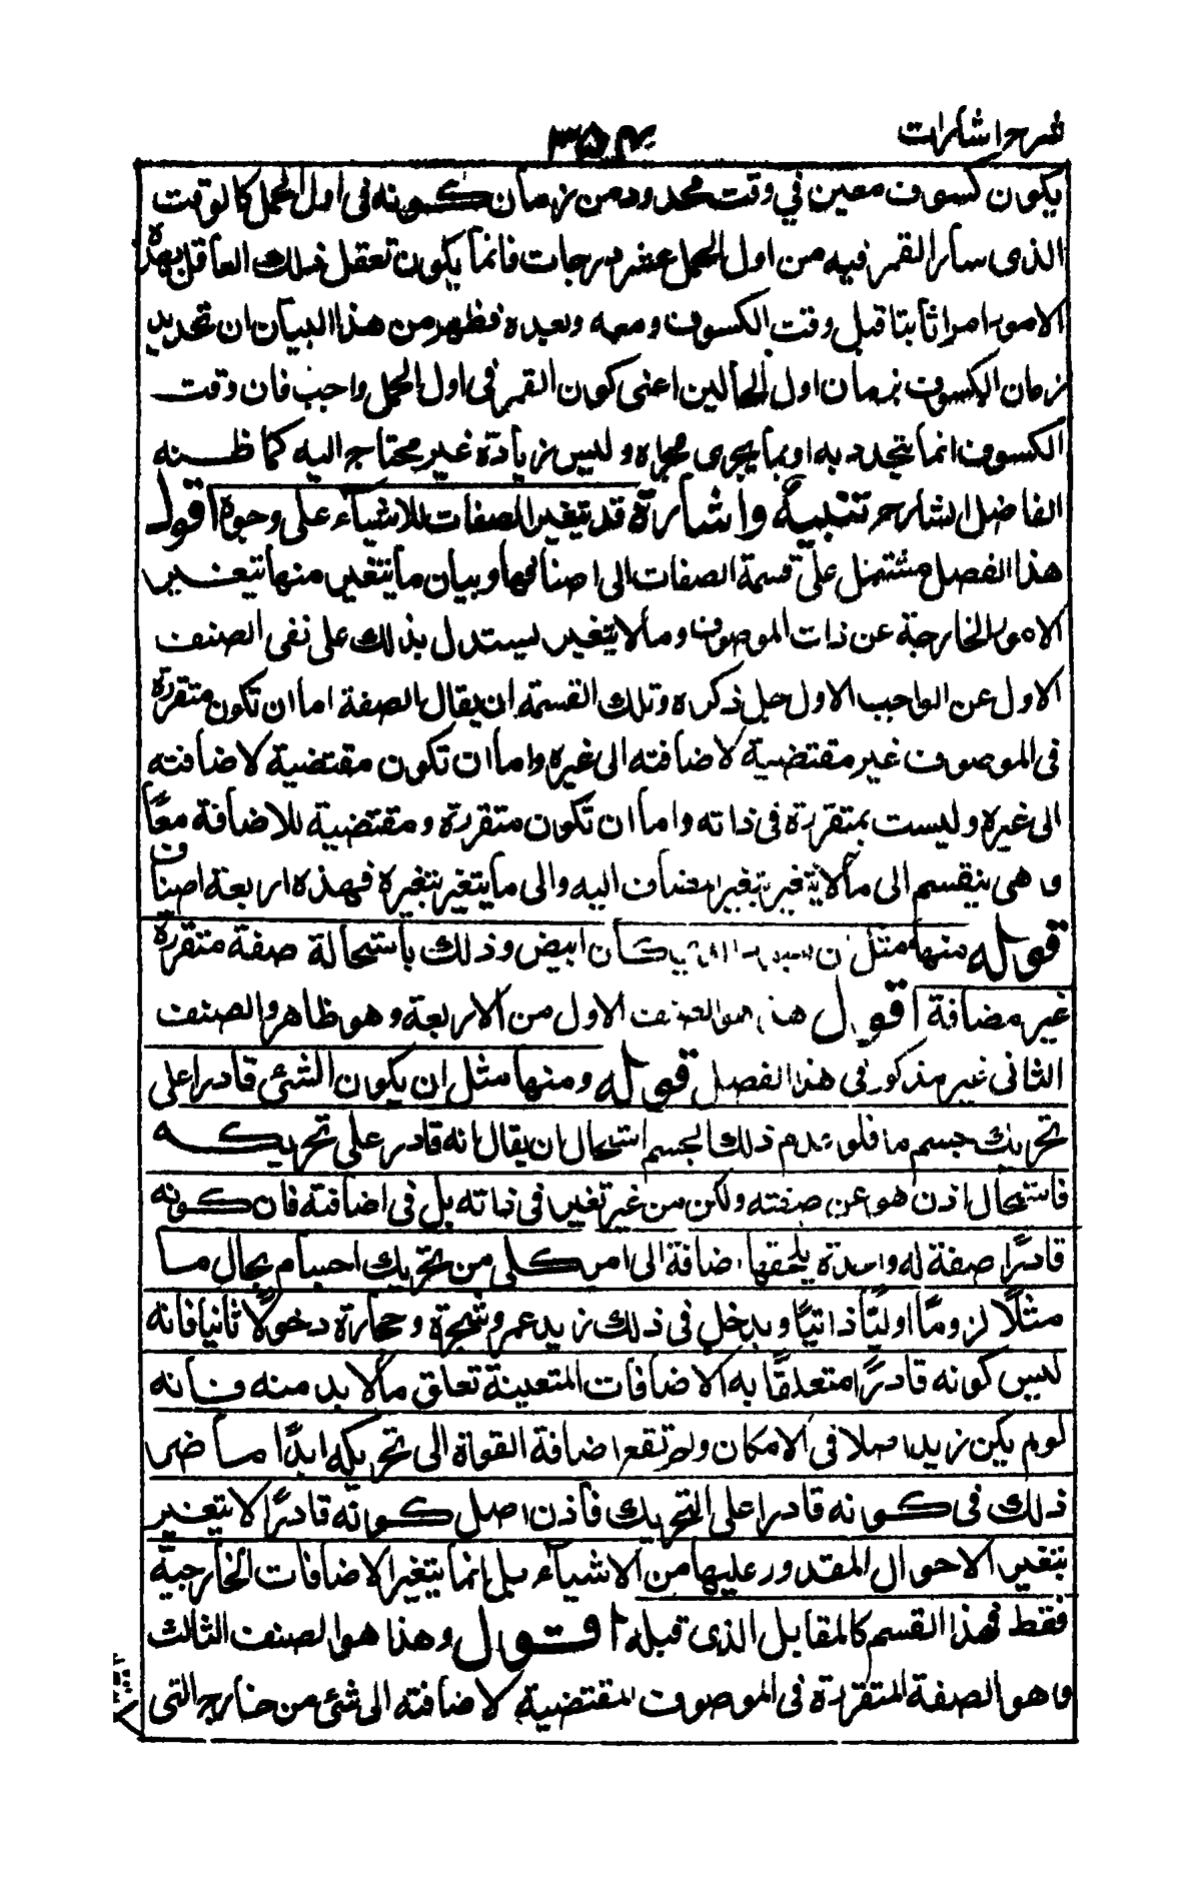 شرح اشارات
٣٥٤
يكون كسوف معين في وقت محدود من زمان كونه فى اول الحمل كالوقت
الذى سار القمر فيه من اول الحمل عشر درجات فانما يكون تعقل ذلك العاقل بهذه
الامور امرا ثابتا قبل وقت الكسوف ومعه وبعده فظهر من هذا البيان ان تحديد
زمان الكسوف بزمان اول الحالين اعنى كون القمر فى اول الحمل واجب فان وقت
الكسوف انما يتحدد به او بما يجرى مجراه وليس زيادة غير محتاج اليه كما ظنه
الفاضل الشارح تنبيه واشارة قد يتغير الصفات للاشياء على وجوه اقول
هذا الفصل مشتمل على قسمة الصفات الى اصنافها وبيان ما يتغير منها بتغير
الامور الخارجة عن ذات الموصوف وما لا يتغير ليستدل بذلك على نفى الصنف
الاول عن الواجب الاول جل ذكره وتلك القسمة ان يقال الصفة اما ان تكون متقررة
فى الموصوف غير مقتضية لاضافته الى غيره واما ان تكون مقتضية لاضافته
الى غيره وليست بمتقررة فى ذاته واما ان تكون متقررة ومقتضية للاضافة معًا
وهى ينقسم الى ما لا يتغير بتغير المضاف اليه والى ما يتغير بتغيره فهذه اربعة اصناف
قوله منها مثل ان كان ابيض وذلك باستحالة صفة متقررة
غير مضافة اقول هذا هو الصنف الاول من الاربعة وهو ظاهر والصنف
الثانى غير مذكور فى هذا الفصل قوله ومنها مثل ان يكون الشئ قادرا على
تحريك جسم ما فلو عدم ذلك الجسم استحال ان يقال انه قادر على تحريكه
فاستحال اذن هو عن صفته ولكن من غير تغير فى ذاته بل فى اضافته فان كونه
قادرًا صفة له واحدة يلحقها اضافة الى امر كلى من تحريك اجسام بحال ما
مثلًا لزومًا اوليًا ذاتيًا ويدخل فى ذلك زيد عمرو شجرة وحجارة دخولًا ثانيا فانه
ليس كونه قادرًا متعلقًا به الاضافات المتعينة تعلق ما لا بد منه فانه
لو لم يكن زيد اصلا فى الامكان ولم تقع اضافة القوة الى تحريكه ابدًا ما ضر
ذلك فى كونه قادرا على التحريك فاذن اصل كونه قادرًا لا يتغير
بتغير الاحوال المقدور عليها من الاشياء بل انما يتغير الاضافات الخارجية
فقط فهذا القسم كالمقابل الذى قبله اقول وهذا هو الصنف الثالث
وهو الصفة المتقررة فى الموصوف المقتضية لاضافته الى شئ من خارج التى